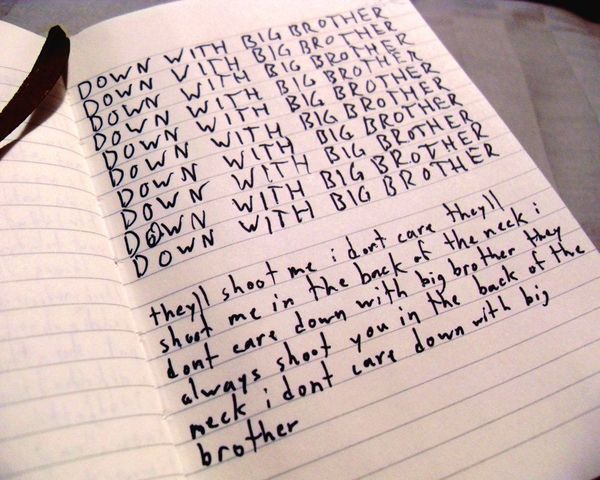 DOWN WITH BIG BROTHER
DOWN WITH BIG BROTHER
DOWN WITH BIG BROTHER
DOWN WITH BIG BROTHER
DOWN WITH BIG BROTHER
DOWN WITH BIG BROTHER
DOWN WITH BIG BROTHER
DOWN WITH BIG BROTHER
DOWN WITH BIG BROTHER
theyll shoot me i dont care theyll
shoot me in the back of the neck i
dont care down with big brother they
always shoot you in the back of the
neck i dont care down with big
brother